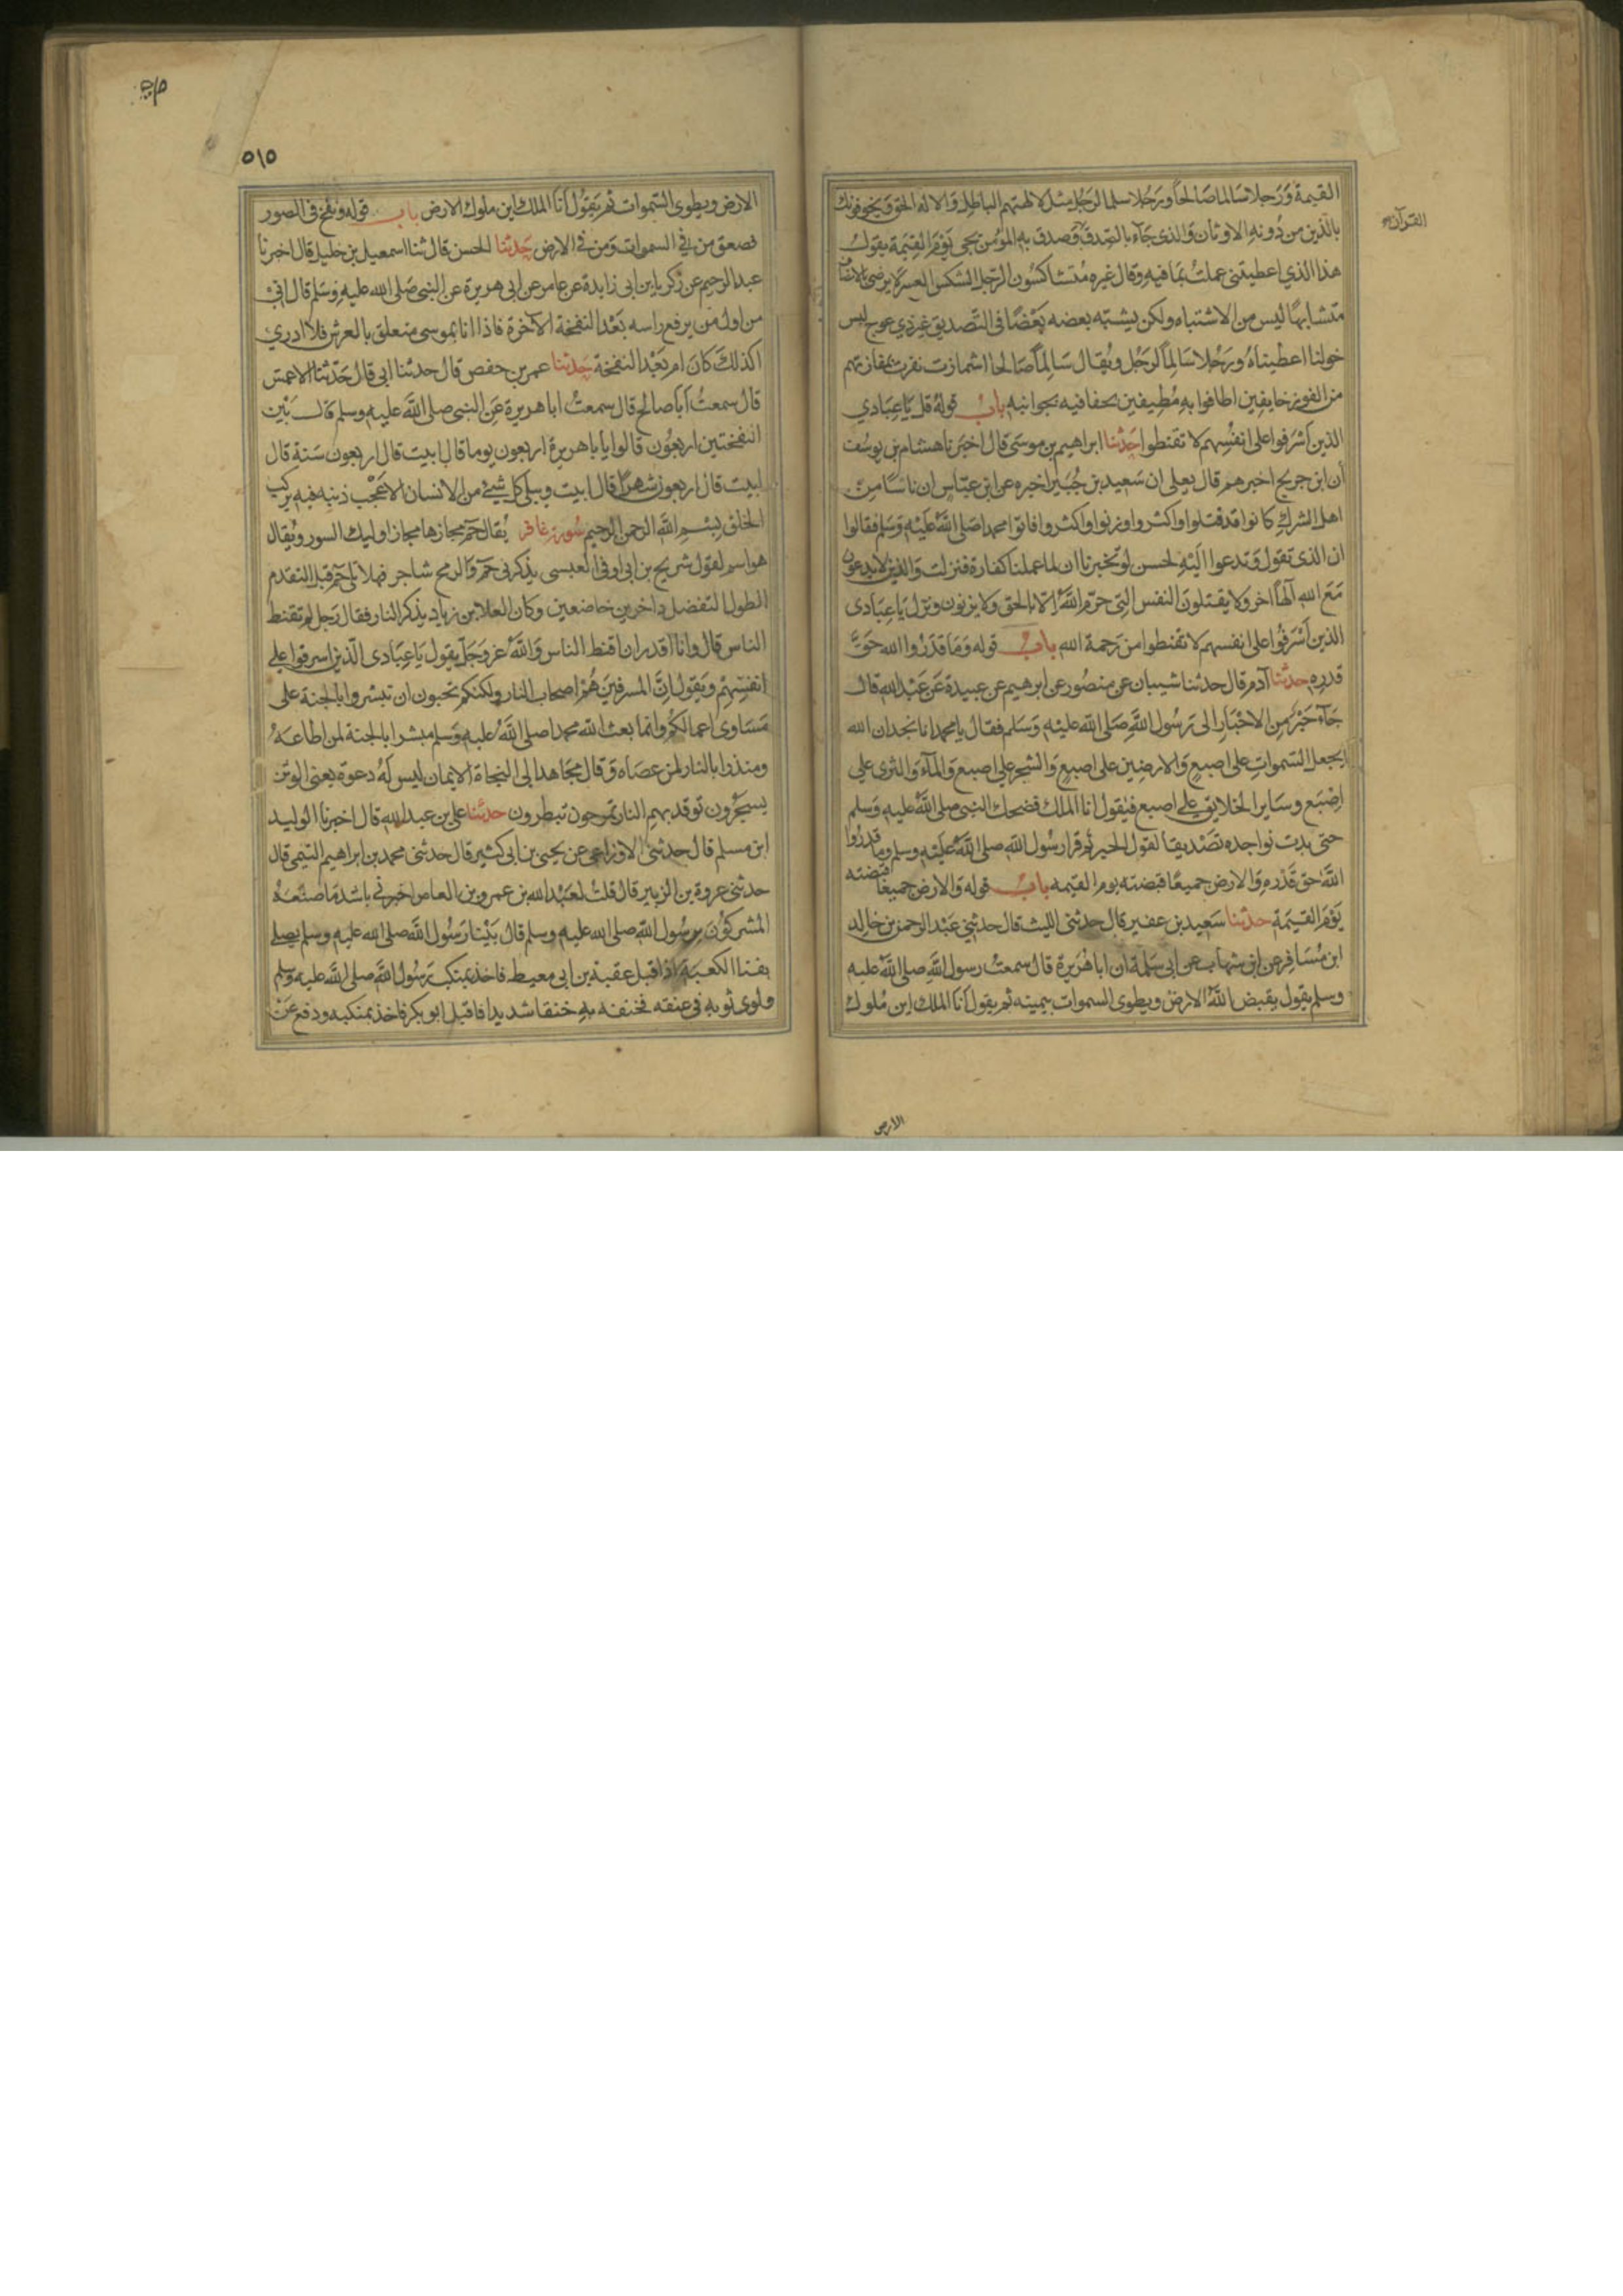 القيمة وَرَجلا سَالما صَالحاً ورَجُلا سلما لرَجُل مثل لالهتهم الباطل وَالاله الحق ويخوفونك
القرآن
بالّذين من دُونه الاوثان وَالذى جَآء بالصّدق وَصدق به المؤمن يجى يَوْمَ القِيَمة يقول
هذا الذي اعطيتنى عملتُ بمَا فيه وقال غيره مُتشاكسُون الرّجل الشكس العسر لا يرضى بالانصاف
متشابهًا ليس من الاشتباه ولكن يشبّه بعضه بَعْضًا فى التّصديق غير ذي عوج لبس
خولنا اعطيناهُ ورَجُلا سَالِماً لرَجُل ويُقال سَالِماً صَالحا اشمازت نفرت بمفازتهم
من الفوز حافيين اطافوا بهِ مُطِيفين بحفافيه بجوانبه بابُ قولهُ قل يَا عِبَادي
الذين اَسْرَفوا على انفُسِهم لا تقنطوا حَدثنا ابراهيم بن موسَى قال اخبَرنا هشام بن يوسُف
أن ابن جريج اخبرهم قال يعلى ان سَعِيد بن جُبَير اخبره عن ابن عبّاس ان ناسًا من
اهل الشرك كانوا قد قتلوا واكثروا وزنوا واكثروا فاتوا محمدا صَلى اللّٰهُ عَلَيْهِ وَسَلم فقالوا
ان الذى تقول وَتدعوا اليْهِ لحسن لو تخبرنا ان لما عملنا كفارة فنزلت وَالذين لا يدعون
مَعَ الله آلهًا اخر ولا يقتلونَ النفس الّتى حرّم اللّٰهُ الّا بالحَق ولا يزنون ونزل يَا عِبَادى
الذين اَسْرَفُوا على انفسهم لا تقنطوا من رَحمة الله بابُ قوله وَمَا قدَرُوا الله حَقَّ
قدرِه حدثنا آدم قال حدثنا شيبان عن منصُور عن ابرهيم عن عبيدة عَن عَبْد الله قال
جَآءَ حَبْرٌ مِن الاحْبَارِ الى رَسُول اللّٰهِ صَلى اللّٰه عليْهِ وَسَلم فقال يا محمد انا نجد ان الله
يجعل السّموات على اصبعٍ وَالارضين على اصبعٍ وَالشجر على اصبع وَالمآءَ وَالثرى على
اصْبَع وسَاير الخلايق على اصبع فيَقول انا الملك فضحك النبى صلى اللّٰهُ عليْه وَسلم
حتى بدت نواجده تصْديقاً لقول الحبر ثم قرا رسُول اللّٰهِ صلى اللّٰهُ عَليْهِ وسلم وما قدرُوا
اللّٰهَ حق قَدْرهِ وَالارض جميعًا قبضته يوم القيمه بابُ قوله وَالارض جميعًا قبضته
يَوْمَ القيمَة حدثنا سَعِيد بن عفير قال حدثنى الليث قال حدثنى عَبْد الرحمن بن خالد
ابن مُسَافِر عن ابن شهاب عن ابى سَلمة ان ابا هُرَيرة قال سمعتُ رسول اللّٰهِ صلى اللّٰهُ عليه
وسلم يقول يقبض اللّٰهُ الارض ويطوى السموات بيمينه ثم يقول اَنا الملك اين مُلوك
الارض
٥١٥
الارض ويطوى السّموات ثم يَقوُل اَنا الملك اين ملوك الارض باب قوله ونفخ فى الصور
فصعق من فى السموات وَمن فى الارض حَدثنا الحسن قال ثنا اسمعيل بن خليل قال اخبرنا
عبد الرحيم عن زكريا بن ابى زايدة عن عامر عن ابى هريرة عن النبى صَلى الله عليهِ وَسَلم قال انى
من اول من يرفع راسه بَعْد النفخة الآخرة فاذا انا بموسى متعلق بالعرش فلا ادرى
اكذلك كانَ ام بَعْد النفخة حَدثنا عمر بن حفص قال حدثنا ابى قال حَدّثنا الاعمش
قال سمعتُ اَبا صالح قال سمعتُ ابا هريرة عَن النبى صلى اللّٰهُ عليه وسلم قال بَيْن
النفختين اربعُون قالوا يا با هريرة اربعون يوما قال ابيت قال اربعون سَنة قال
ابيت قال اربعون شهرًا قال ابيت ويبلى كل شيء من الانسان الا عَجْب ذنبه فيه يركب
الخلق بِسْمِ اللّٰهِ الرحمن الرحيم سُورة غافر يُقال حٓم مجازها مجاز اوليك السور ويُقال
هو اسم لقول شريح بن ابى اوفى العبسى يذكرنى حٓم وَالرمح شاجر فهلا تلا حٓم قبل التقدم
الطول التفضل داخرين خاضعين وكان العلا بن زياد يذكر النار فقال رَجل لم تقنط
الناس قال وانا اقدر ان اقنط الناس وَاللّٰهُ عز وَجَلّ يقول يَا عِبَادى الّذين اسرفوا على
انفسِهِمْ وَيَقول انّ المسرفينَ هُمْ اصحاب النار ولكنكم تحبون ان تبشروا بالجنة على
مَسَاوى اعمالكُم وانما بعث اللّٰه محمدا صلى اللّٰهُ عليهِ وَسلم مبشرا بالجنة لمن اطاعَهُ
ومنذرا بالنار لمن عصَاه وَقال مجَاهد الى النجاة الايمان ليس لهُ دعوة يعنى الوثن
يسجَرون توقد بهم النار تمرحون تبطرون حدثنا على بن عبد اللّٰهِ قال اخبرنا الوليد
ابن مسلم قال حدثنى الاوزاعى عن يحيى بن ابى كثير قال حدثنى محمد بن ابراهيم التيمى قال
حدثنى عروة بن الزبير قال قلت لعَبْد الله بن عمرو بن العاص اخبرنى باشد مَا صنعَهُ
المشركوُنَ برسُول اللّٰهِ صلى الله عليه وسلم قال بَيْنا رَسُول اللّٰهِ صلى اللّٰه عليه وسلم يصلى
بفنا الكعبَة اذ اقبل عقبة بن ابى معيط فاخذ بمنكب رَسُول اللّٰهِ صلى اللّٰهُ عليه وسَلم
ولوى ثوبه فى عنقه فخنقه بهِ خنقا شديدا فاقبل ابو بكر فاخذ بمنكبه ودفع عَنْ